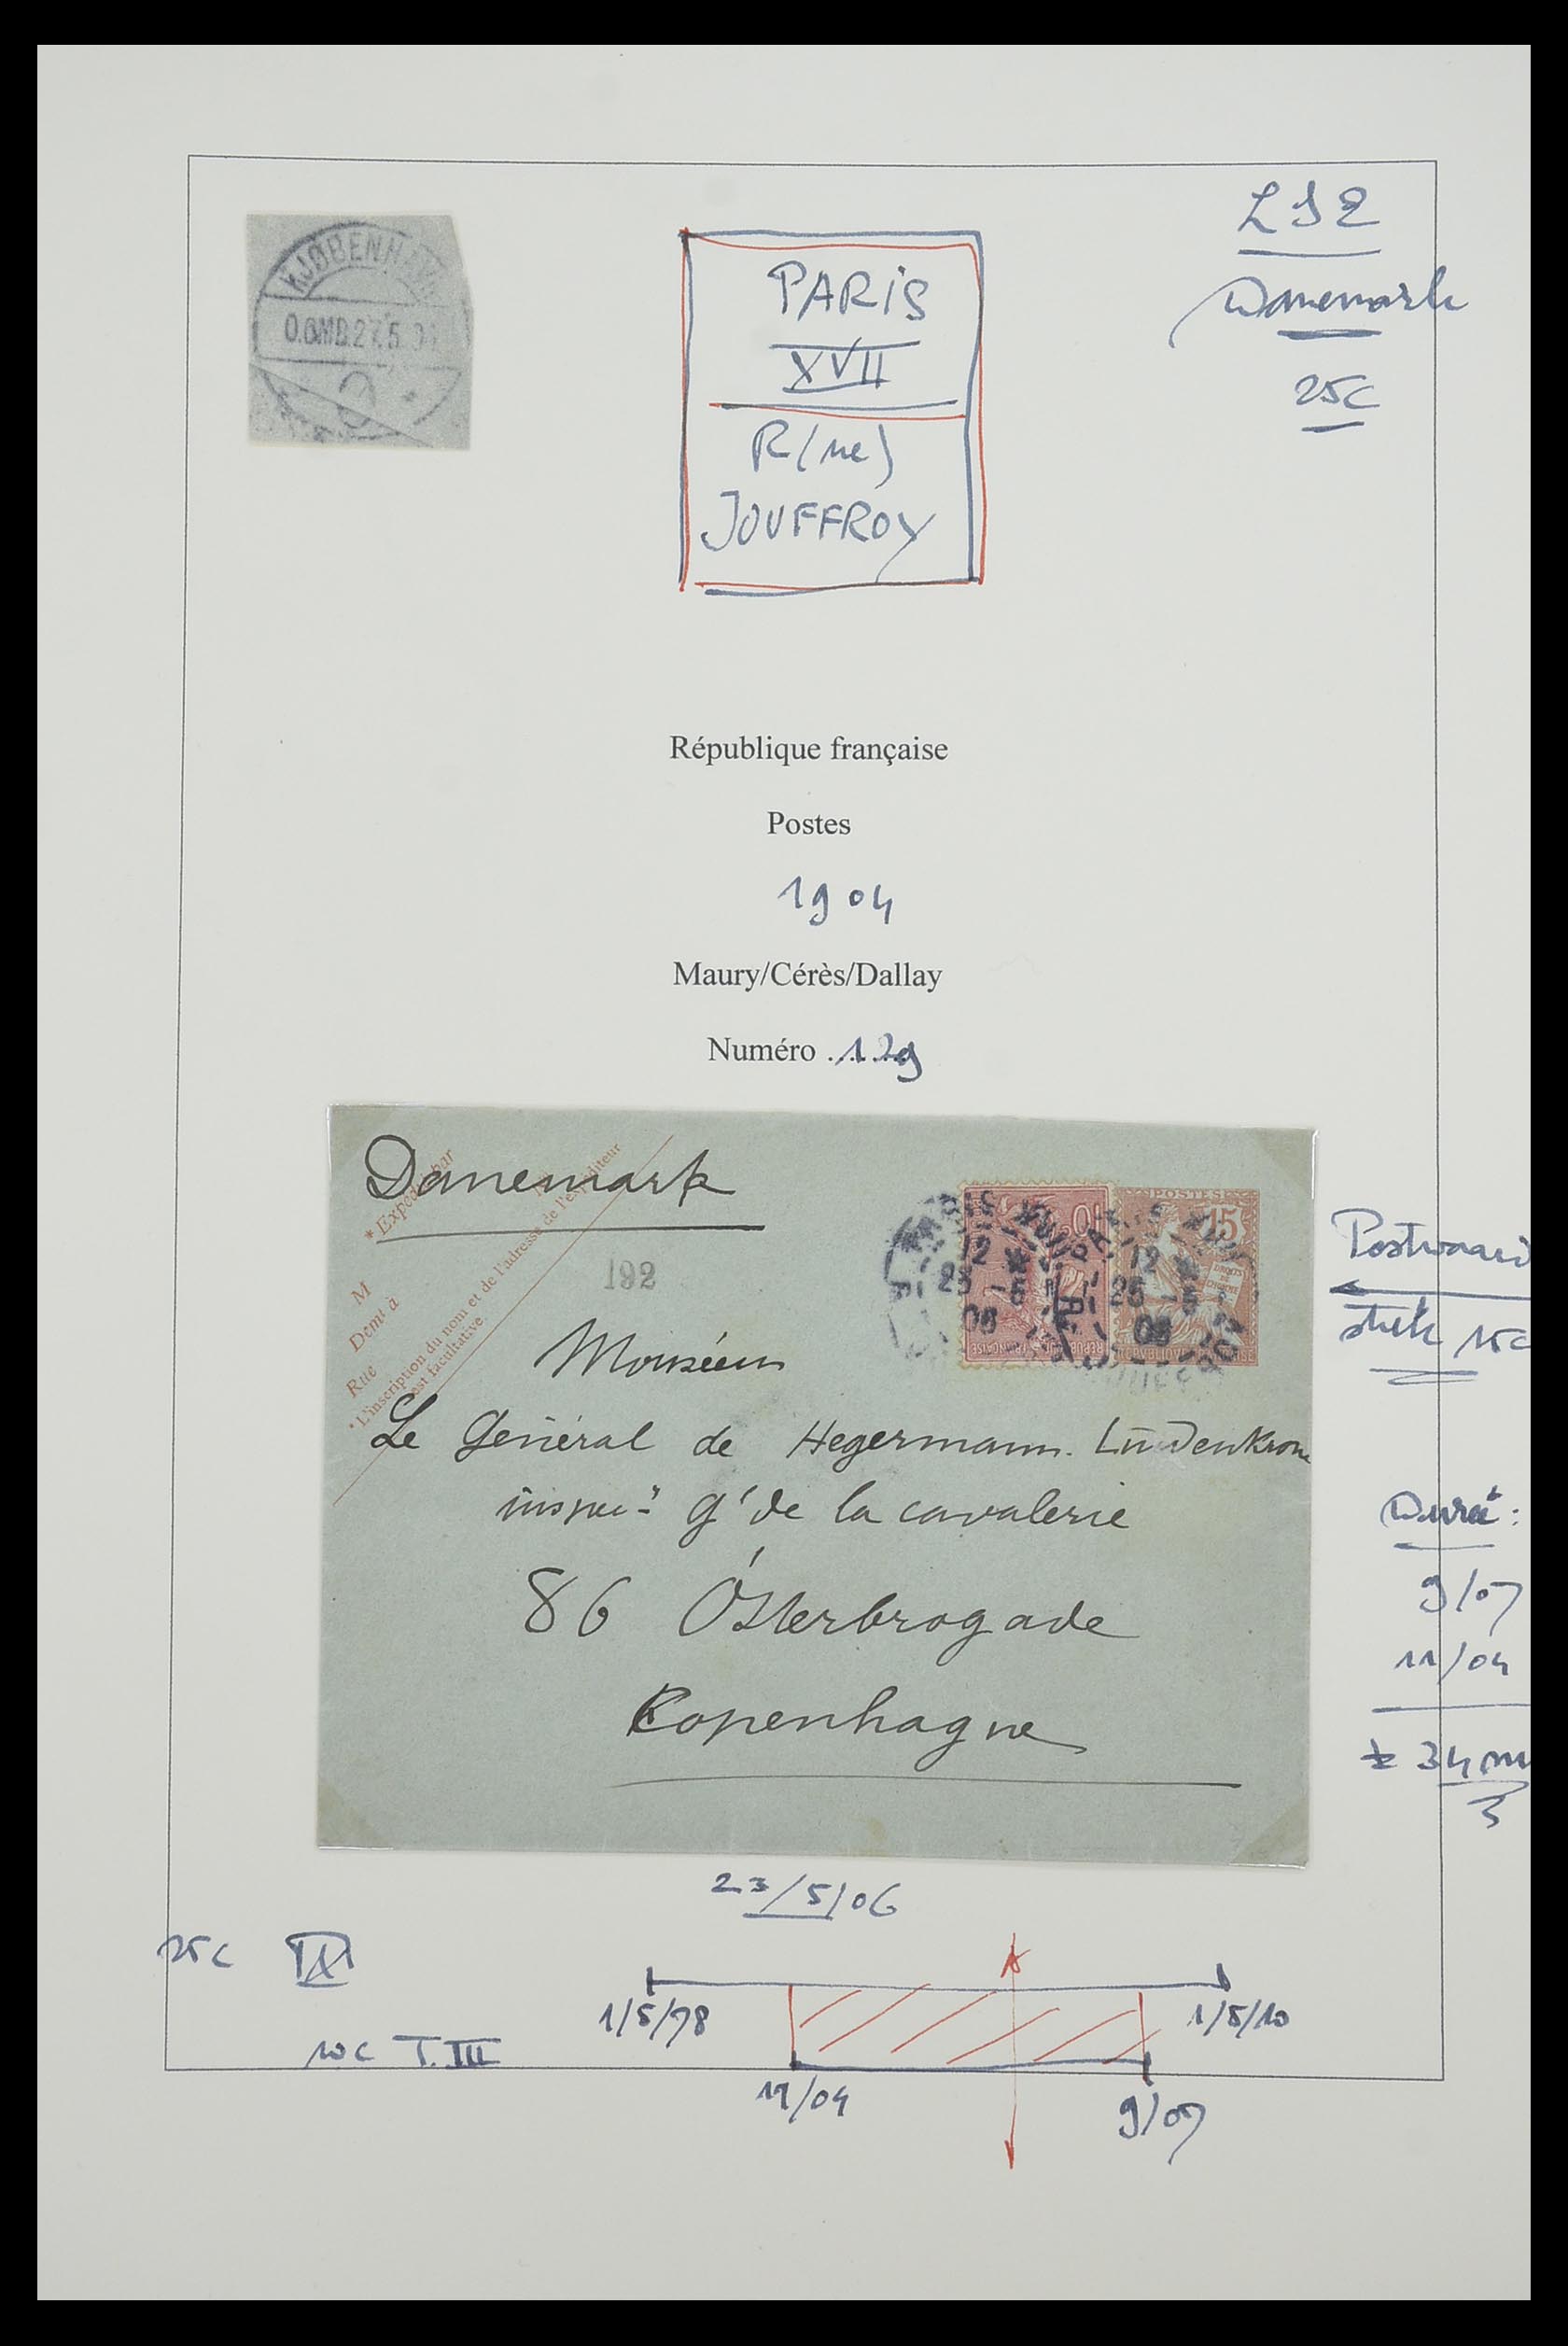 KJØBENHAVN
0.6MB.27.5.0
PARIS
XVII
R(ue)
JOUFFROY
LSE
Danemark
25c
République française
Postes
1904
Maury/Cérès/Dallay
Numéro ...129
Danemark
* Expédié par
M
Demt à
Rue
* L'inscription du nom et de l'adresse de l'expéditeur
est facultative
192
POSTES
15
DROITS
DE
L'HOMME
10
12
25 -5
06
12
25 -5
06
PARIS
JOUFFROY
Monsieur
Le Général de Hegermann. Lindenkrone
inspecr gl de la cavalerie
86 Österbrogade
Copenhague
Postwaard
stuk 15c
Durée :
9/07
11/04
± 34 m
3
23/5/06
25c IX
10c T.III
1/5/78
1/5/10
11/04
9/07